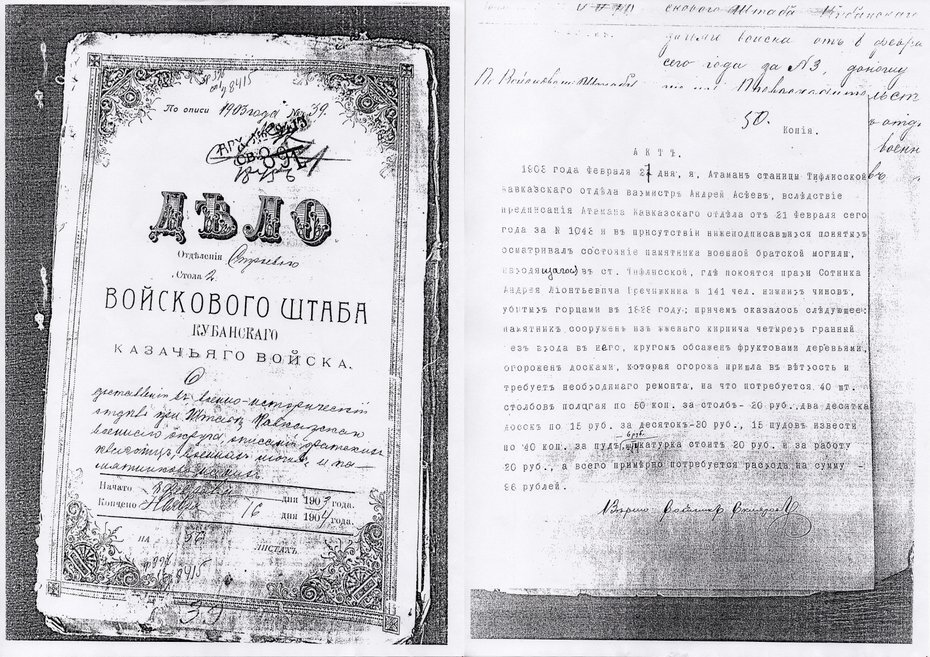 По описи 1903 года № 39.
ДѢЛО
Отдѣленія Строеваго
Стола 2
ВОЙСКОВОГО ШТАБА
КУБАНСКАГО
КАЗАЧЬЯГО ВОЙСКА.
О
доставленіи въ военно-историческій
отдѣлъ при Штабѣ Кавказскаго
военнаго округа описаній братскихъ
кладбищъ, военныхъ могилъ и па-
мятниковъ
Начато дня 1903 года.
Кончено 16 дня 1904 года.
НА 156 ЛИСТАХЪ.
8415
39
скового Штаба Кубанскаго
чьяго войска отъ 8 февра
сего года за № 3, доношу
50.
Копія.
АКТЪ.
1903 года Февраля 27 дня, я, Атаманъ станицы Тифлисской
Кавказскаго отдѣла вахмистръ Андрей Асѣевъ, вслѣдствіе
предписанія Атамана Кавказскаго отдѣла отъ 21 Февраля сего
года за № 1043 и въ присутствіи нижеподписавшихся понятыхъ
осматривалъ состояніе памятника военной братской могилы,
находящагося въ ст. Тифлисской, гдѣ покоятся прахи Сотника
Андрея Леонтьевича Гречишкина и 141 чел. нижнихъ чиновъ,
убитыхъ горцами въ 1829 году; причемъ оказалось слѣдующее:
памятникъ сооруженъ изъ жженаго кирпича четырехъ гранный
безъ входа въ него, кругомъ обсаженъ фруктовыми деревьями,
огорожена досками, которая огорожа пришла въ вѣтхость и
требуетъ необходимаго ремонта, на что потребуется 40 шт.
столбовъ полагая по 50 коп. за столбъ- 20 руб., два десятка
досокъ по 15 руб. за десятокъ-30 руб., 15 пудовъ извести
по 40 коп. за пудъ 6 руб. штукатурка стоитъ 20 руб. и за работу
20 руб., а всего примѣрно потребуется расхода на сумму -
96 рублей.
Вѣрно: